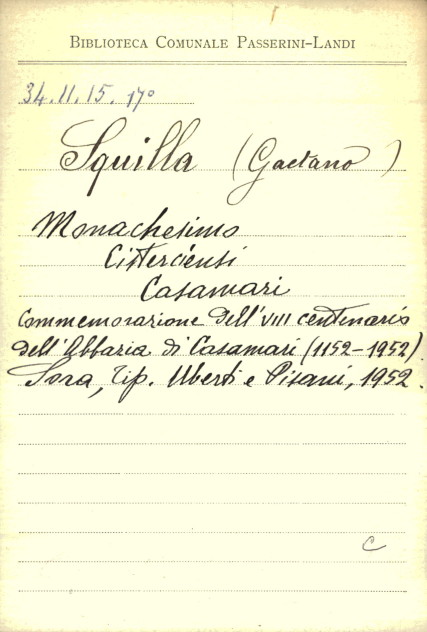 BIBLIOTECA COMUNALE PASSERINI-LANDI
34.II.15.17°
Squilla (Gaetano)
Monachesimo
Cisterciensi
Casamari
Commemorazione dell'VIII centenario
dell'Abbazia di Casamari (1152-1952).
Sora, Tip. Uberti e Pisani, 1952.
C